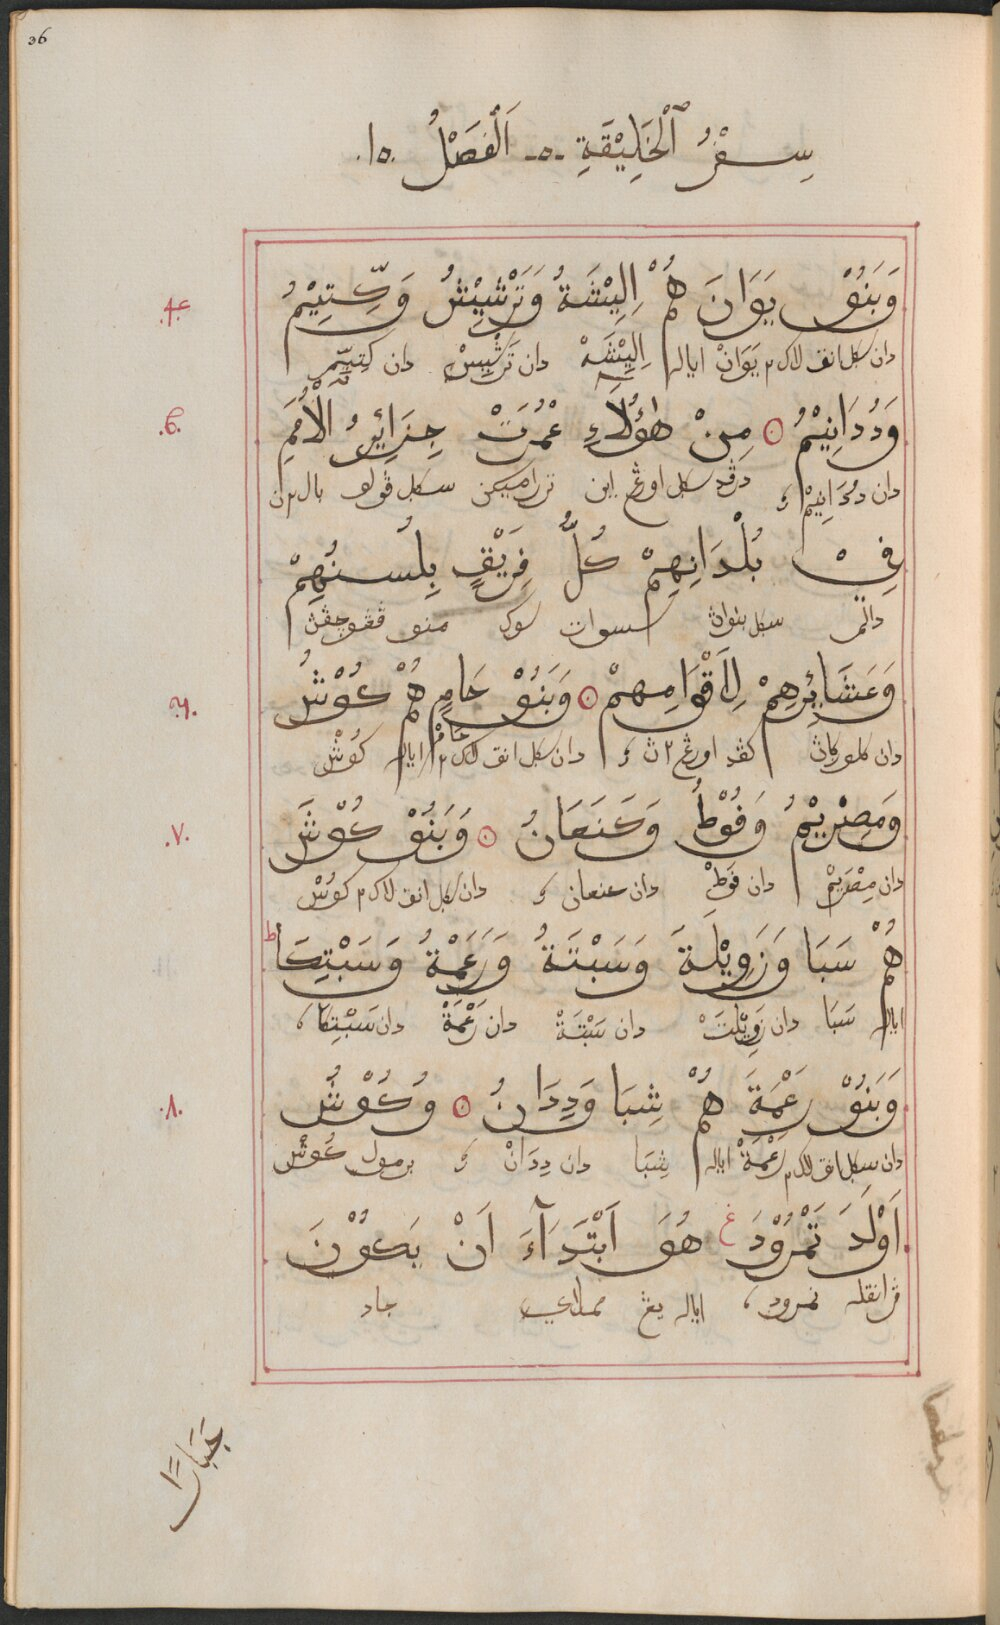 36
سِفْرُ ٱلْخَلِيْقَةِ ـ٥ـ اَلْفَصْلُ .١٥.
وَبَنُوْ يَوَانَ هُمْ اِلِيْشَةُ وَتَرْشِيْشُ وَكِّتِيْمُ
.۴.
دان سكل انق لاک٢ يَوَانْ اياله اِلِيْشَهْ دان تَرْشِيْسْ دان كِتِيّمْ
وَدُدَانِيْمُ ۞ مِنْ هٰؤُلَآءِ عُمِّرَتْ جِزَائِرُ الْأُمَمِ
.۵.
دان دُدَانِيْمْ ؍ درڤد سكل اورڠ اين تراميكن سكل ڤولو بال٢ن
فِيْ بُلْدَانِهِمْ كُلُّ فِرَيْقٍ بِلِسُنِهِمْ
دالم سكل بنوان سسوات سوک منو ڤڠوچڤن
وَعَشَائِرِهِمْ لِاَقْوَامِهِمْ ۞ وَبَنُوْ حَامٍ هُمْ كُوْشُ
.۶.
دان كلوركان كڤد اورڠ٢ن ؍ دان سكل انق لاک٢ حَامْ اياله كُوْشْ
وَمِصْرِيْمُ وَفُوْطُ وَكَنَعَانُ ۞ وَبَنُوْ كُوْشَ
.٧.
دان مِصْرَيِمْ دان فُوْطْ دان كنعان ؍ دان سكل انق لاک٢ كُوْشْ
هُمْ سَبَا وَزَوِيْلَةَ وَسَبْتَةُ وَرَعْمَةُ وَسَبْتِكَا
ط
اياله سَبَا دان زَوِيْلَةْ دان سَبْتَةْ دان رَعْمَةْ دان سَبْتِكَا ،
وَبَنُوْ رَعْمَةَ هُمْ شِبَا وَدِدَانُ ۞ وُكُوْشُ
.٨.
دان سكل انق لاک٢ رَعْمَةْ اياله شِبَا دان دِدَانْ ؍ برمول كُوْشْ
اَوْلَدَ نَمْرُوْدَ هُوَ اَبْتَدَآءَ اَنْ يَكُوْنَ
غ
ڤرانقله نمرود ، اياله يڠ ممولاي جاد
جَبَّارًا